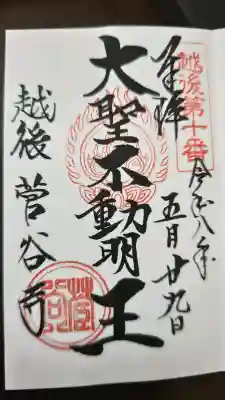 越後第十番
奉拝
令和八年
五月廿九日
大聖不動明王
越後 菅谷寺